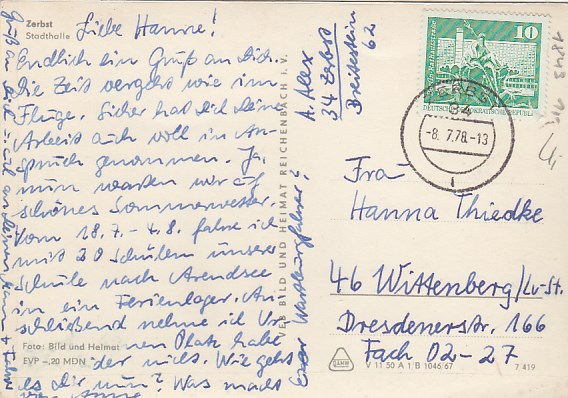 Zerbst
Stadthalle
Liebe Hanne!
Endlich ein Gruß an Dich.
Die Zeit vergeht wie im
Fluge. Sicher hat Dich Deine
Arbeit auch voll in An-
spruch genommen. Ja,
nun warten wir auf
schönes Sommerwetter.
Vom 18.7. - 4.8. fahre ich
mit 20 Schülern unserer
Schule nach Arendsee
in ein Ferienlager. An-
schließend nehme ich Ur
nen Platz habe
der nicht. Wie geht
es Dir nun? Was macht
Euer Wartburgfahrer?
Foto: Bild und Heimat
EVP -,20 MDN
VEB BILD UND HEIMAT REICHENBACH i. V.
A. Alex
34 Zerbst
Breitestein
62
10
DEUTSCHE DEMOKRATISCHE REPUBLIK
ZERBST
34
-8. 7.78.-13
1843
Frau
Hanna Thiedke
46 Wittenberg/Lu.-St.
Dresdenerstr. 166
Fach 02-27
V 11 50 A 1 B 1046/67
7 419